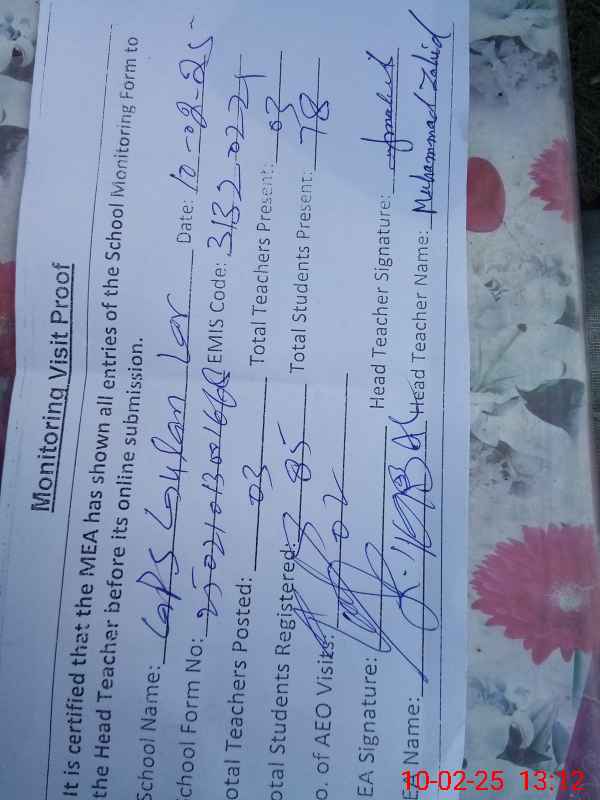 Monitoring Visit Proof
It is certified that the MEA has shown all entries of the School Monitoring Form to
the Head Teacher before its online submission.
School Name: GPS Gulan Lar Date: 10-02-25
chool Form No: EMIS Code: 31320224
otal Teachers Posted: 03 Total Teachers Present: 03
otal Students Registered: 85 Total Students Present: 78
o. of AEO Visits: 02
EA Signature: Head Teacher Signature:
E Name: Head Teacher Name: Muhammad Zahid
10-02-25 13:12